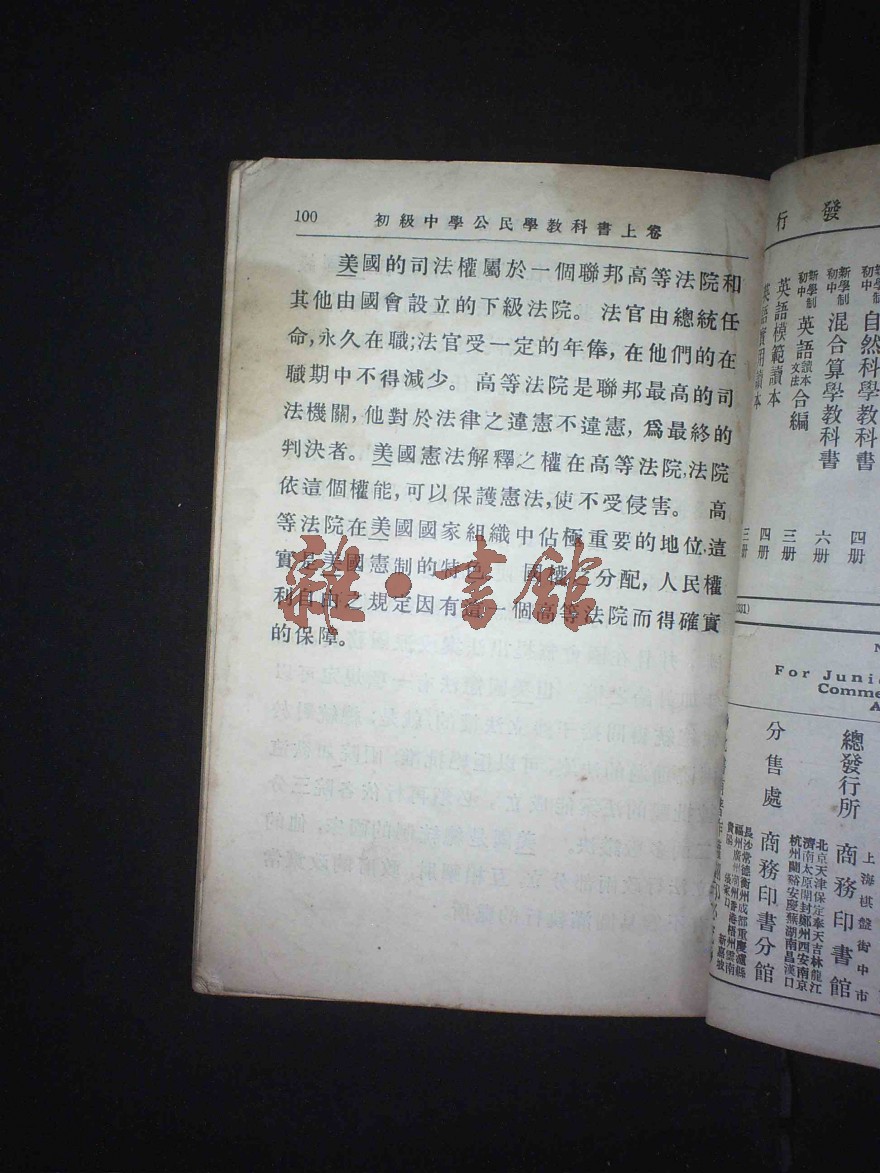 100 初級中學公民學教科書上卷
美國的司法權屬於一個聯邦高等法院和
其他由國會設立的下級法院。 法官由總統任
命,永久在職;法官受一定的年俸, 在他們的在
職期中不得減少。 高等法院是聯邦最高的司
法機關, 他對於法律之違憲不違憲, 爲最終的
判決者。 美國憲法解釋之權在高等法院,法院
依這個權能, 可以保護憲法, 使不受侵害。 高
等法院在美國國家組織中佔極重要的地位,這
實是美國憲制的特色。 國權之分配, 人民權
利自由之規定因有這一個高等法院而得確實
的保障。
雜·書館
行發
新學制初中 自然科學教科書 四册
新學制初中 混合算學教科書 六册
新學制初中 英語讀本文法合編 三册
英語模範讀本 四册
英語實用讀本 三册
For Juni
Comme
總發行所 上海棋盤街中市 商務印書館
分售處 商務印書分館
北京天津保定奉天吉林龍江
濟南太原開封鄭州西安南京
杭州蘭谿安慶蕪湖南昌漢口
長沙常德衡州成都重慶瀘縣
新嘉坡